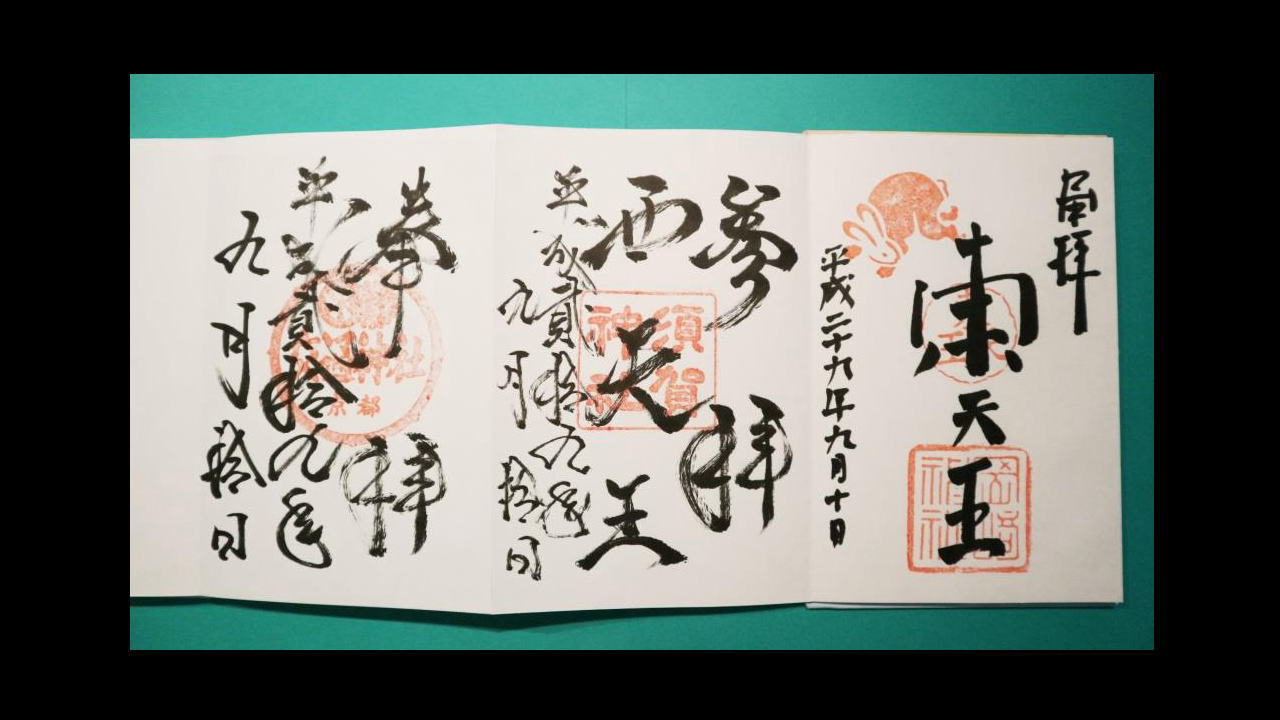 拝
東天王
岡崎神社
平成二十九年九月十日
参拝
西天王
須賀神社
平成貳拾九年
九月拾日
奉拝
神社
京都
平成貳拾九年
九月拾日